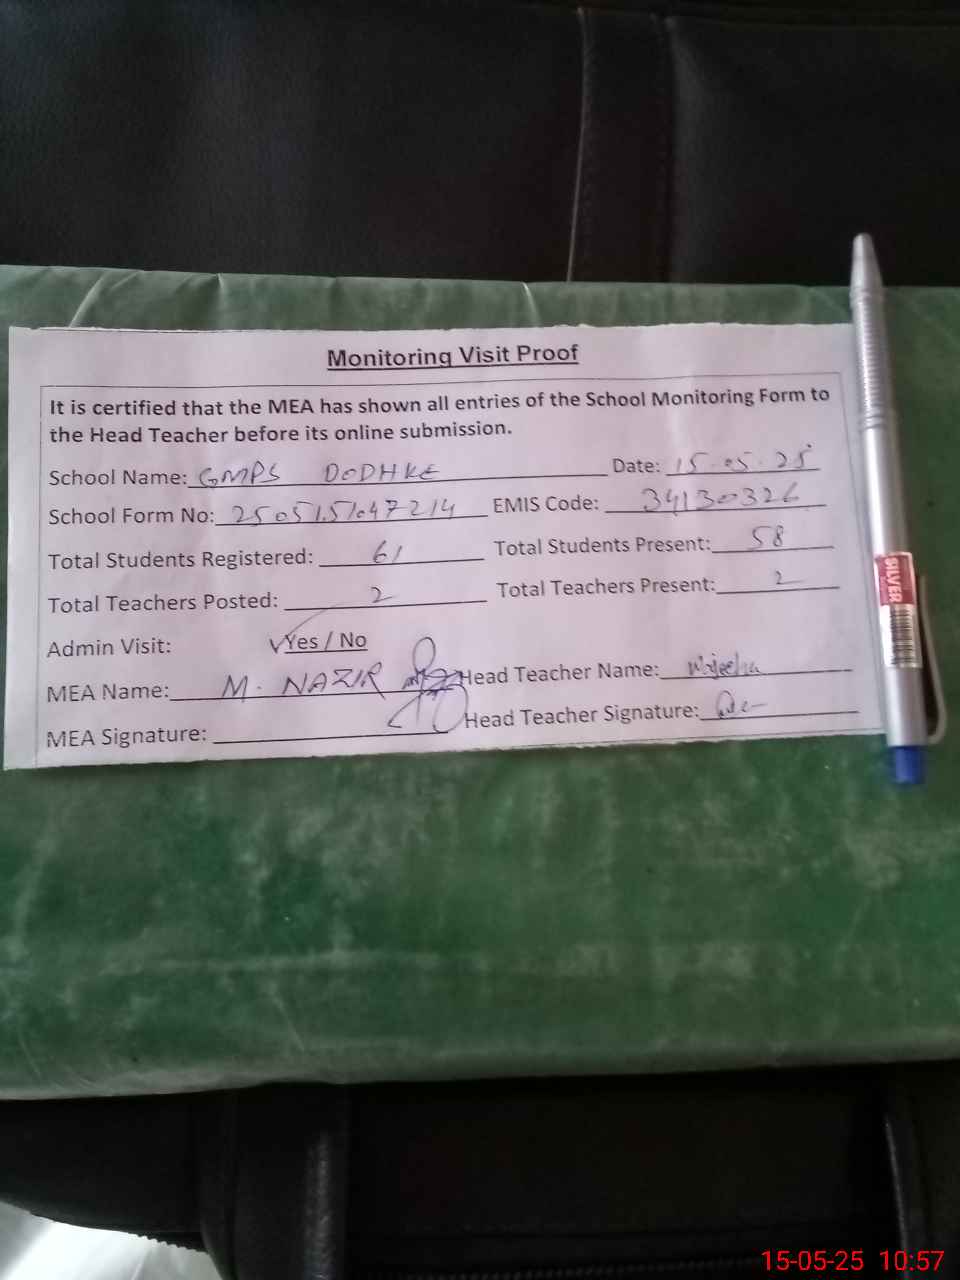 Monitoring Visit Proof
It is certified that the MEA has shown all entries of the School Monitoring Form to
the Head Teacher before its online submission.
School Name: GMPS DODHKE Date: 15.05.25
School Form No: EMIS Code: 34130326
Total Students Registered: 61 Total Students Present: 58
Total Teachers Posted: 2 Total Teachers Present: 2
Admin Visit: ✓Yes / No
MEA Name: M. NAZIR Head Teacher Name: Wajeeha
MEA Signature: Head Teacher Signature:
SILVER
15-05-25 10:57